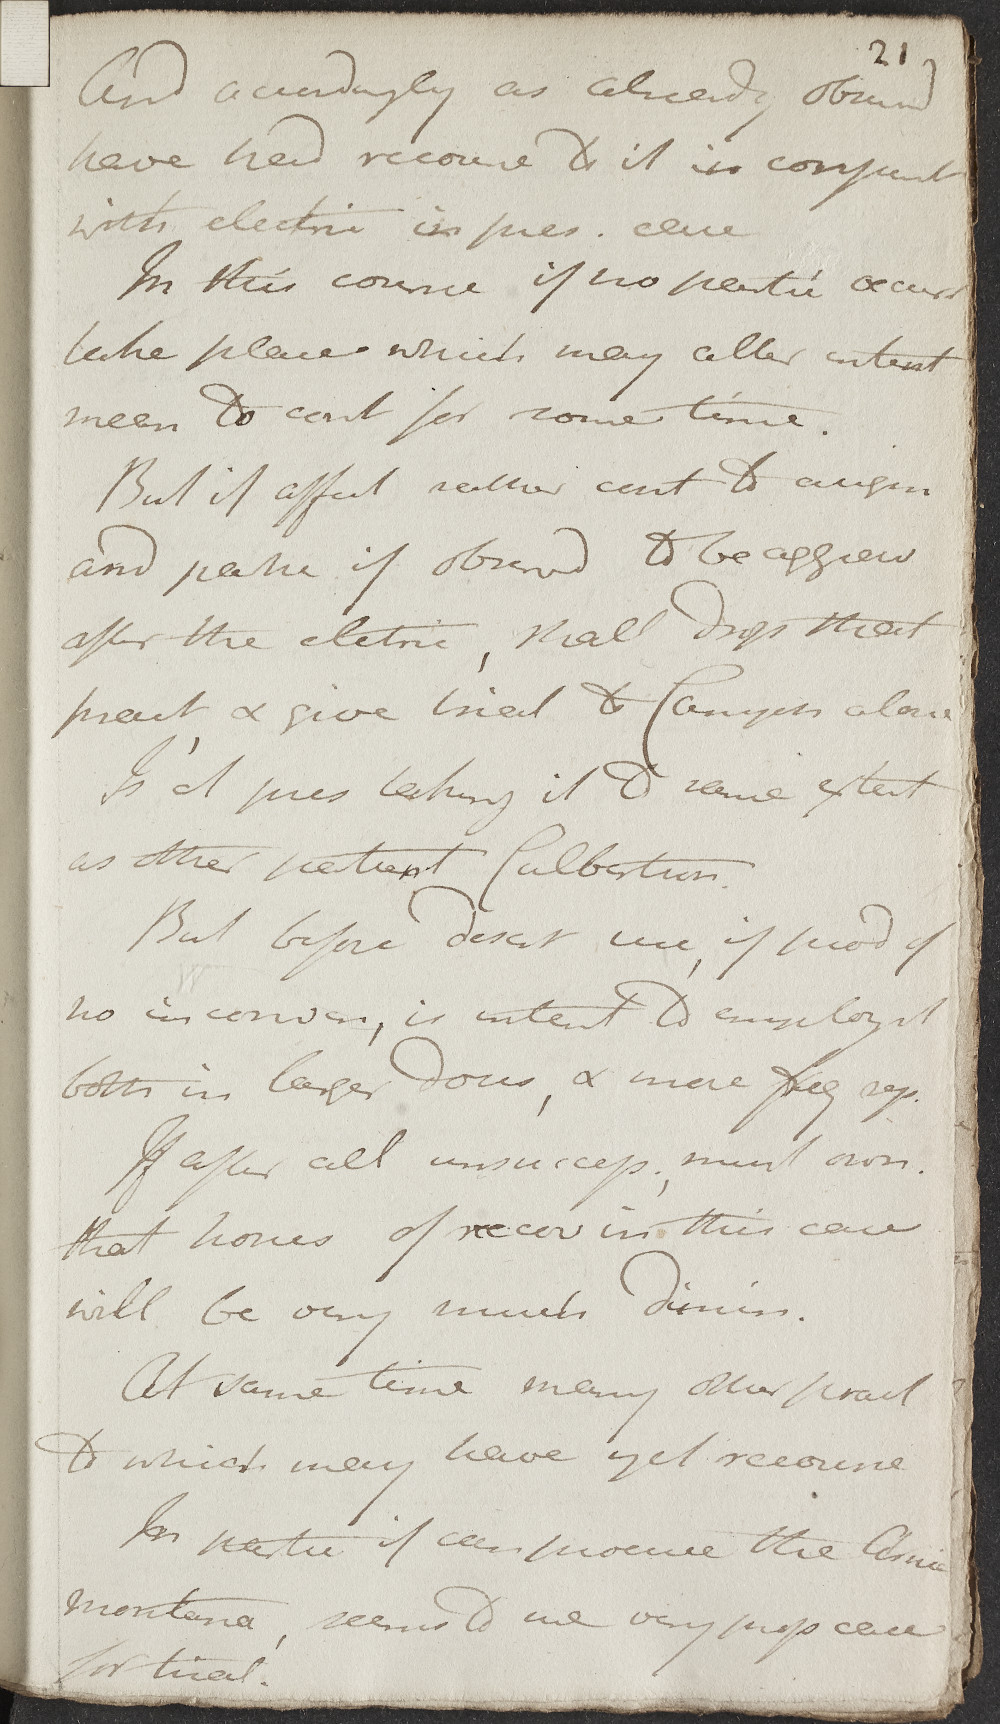 21
And accordingly as already observd
have had recourse to it in conjunct
with electric in pres. case
In this course if no partic occurr
take place which may alter intent
mean to cont for some time.
But if affect rather cont to augm
and partic if observd to be aggrav
after the eletric, shall drop that
pract & give trial to alone
Is at pres taking it to same extent
as other patient Culbertson.
But before desert use, if prod of
no inconven, is intent to employ it
both in larger doses, & more freq rep.
If after all unsuccess., must own.
that hopes of recov in this case
will be very much dimin.
At same time many other pract
to which may have yet recourse
In partic if can procure the Arnic
montana, seems to me very prop case
for trial.